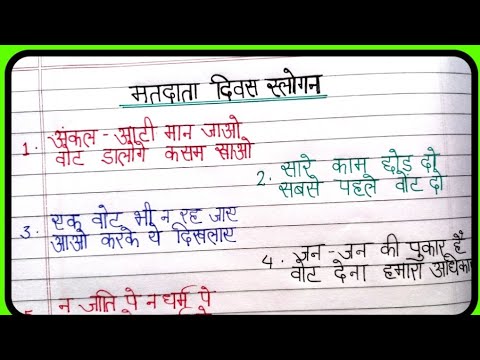 मतदाता दिवस स्लोगन
1. अंकल - आंटी मान जाओ
वोट डालोगे कसम खाओ
2. सारे काम छोड़ दो
सबसे पहले वोट दो
3. एक वोट भी न रह जाए
आओ करके ये दिखलाए
4. जन - जन की पुकार हैं
वोट देना हमारा अधिकार
5. न जाति पे न धर्म पे